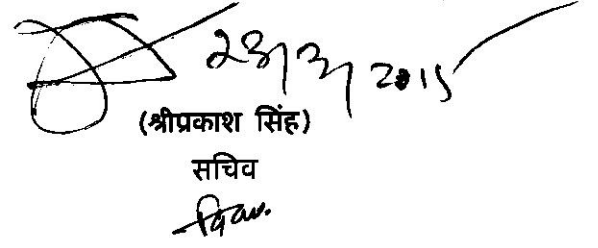 23/3/2015
(श्रीप्रकाश सिंह)
सचिव